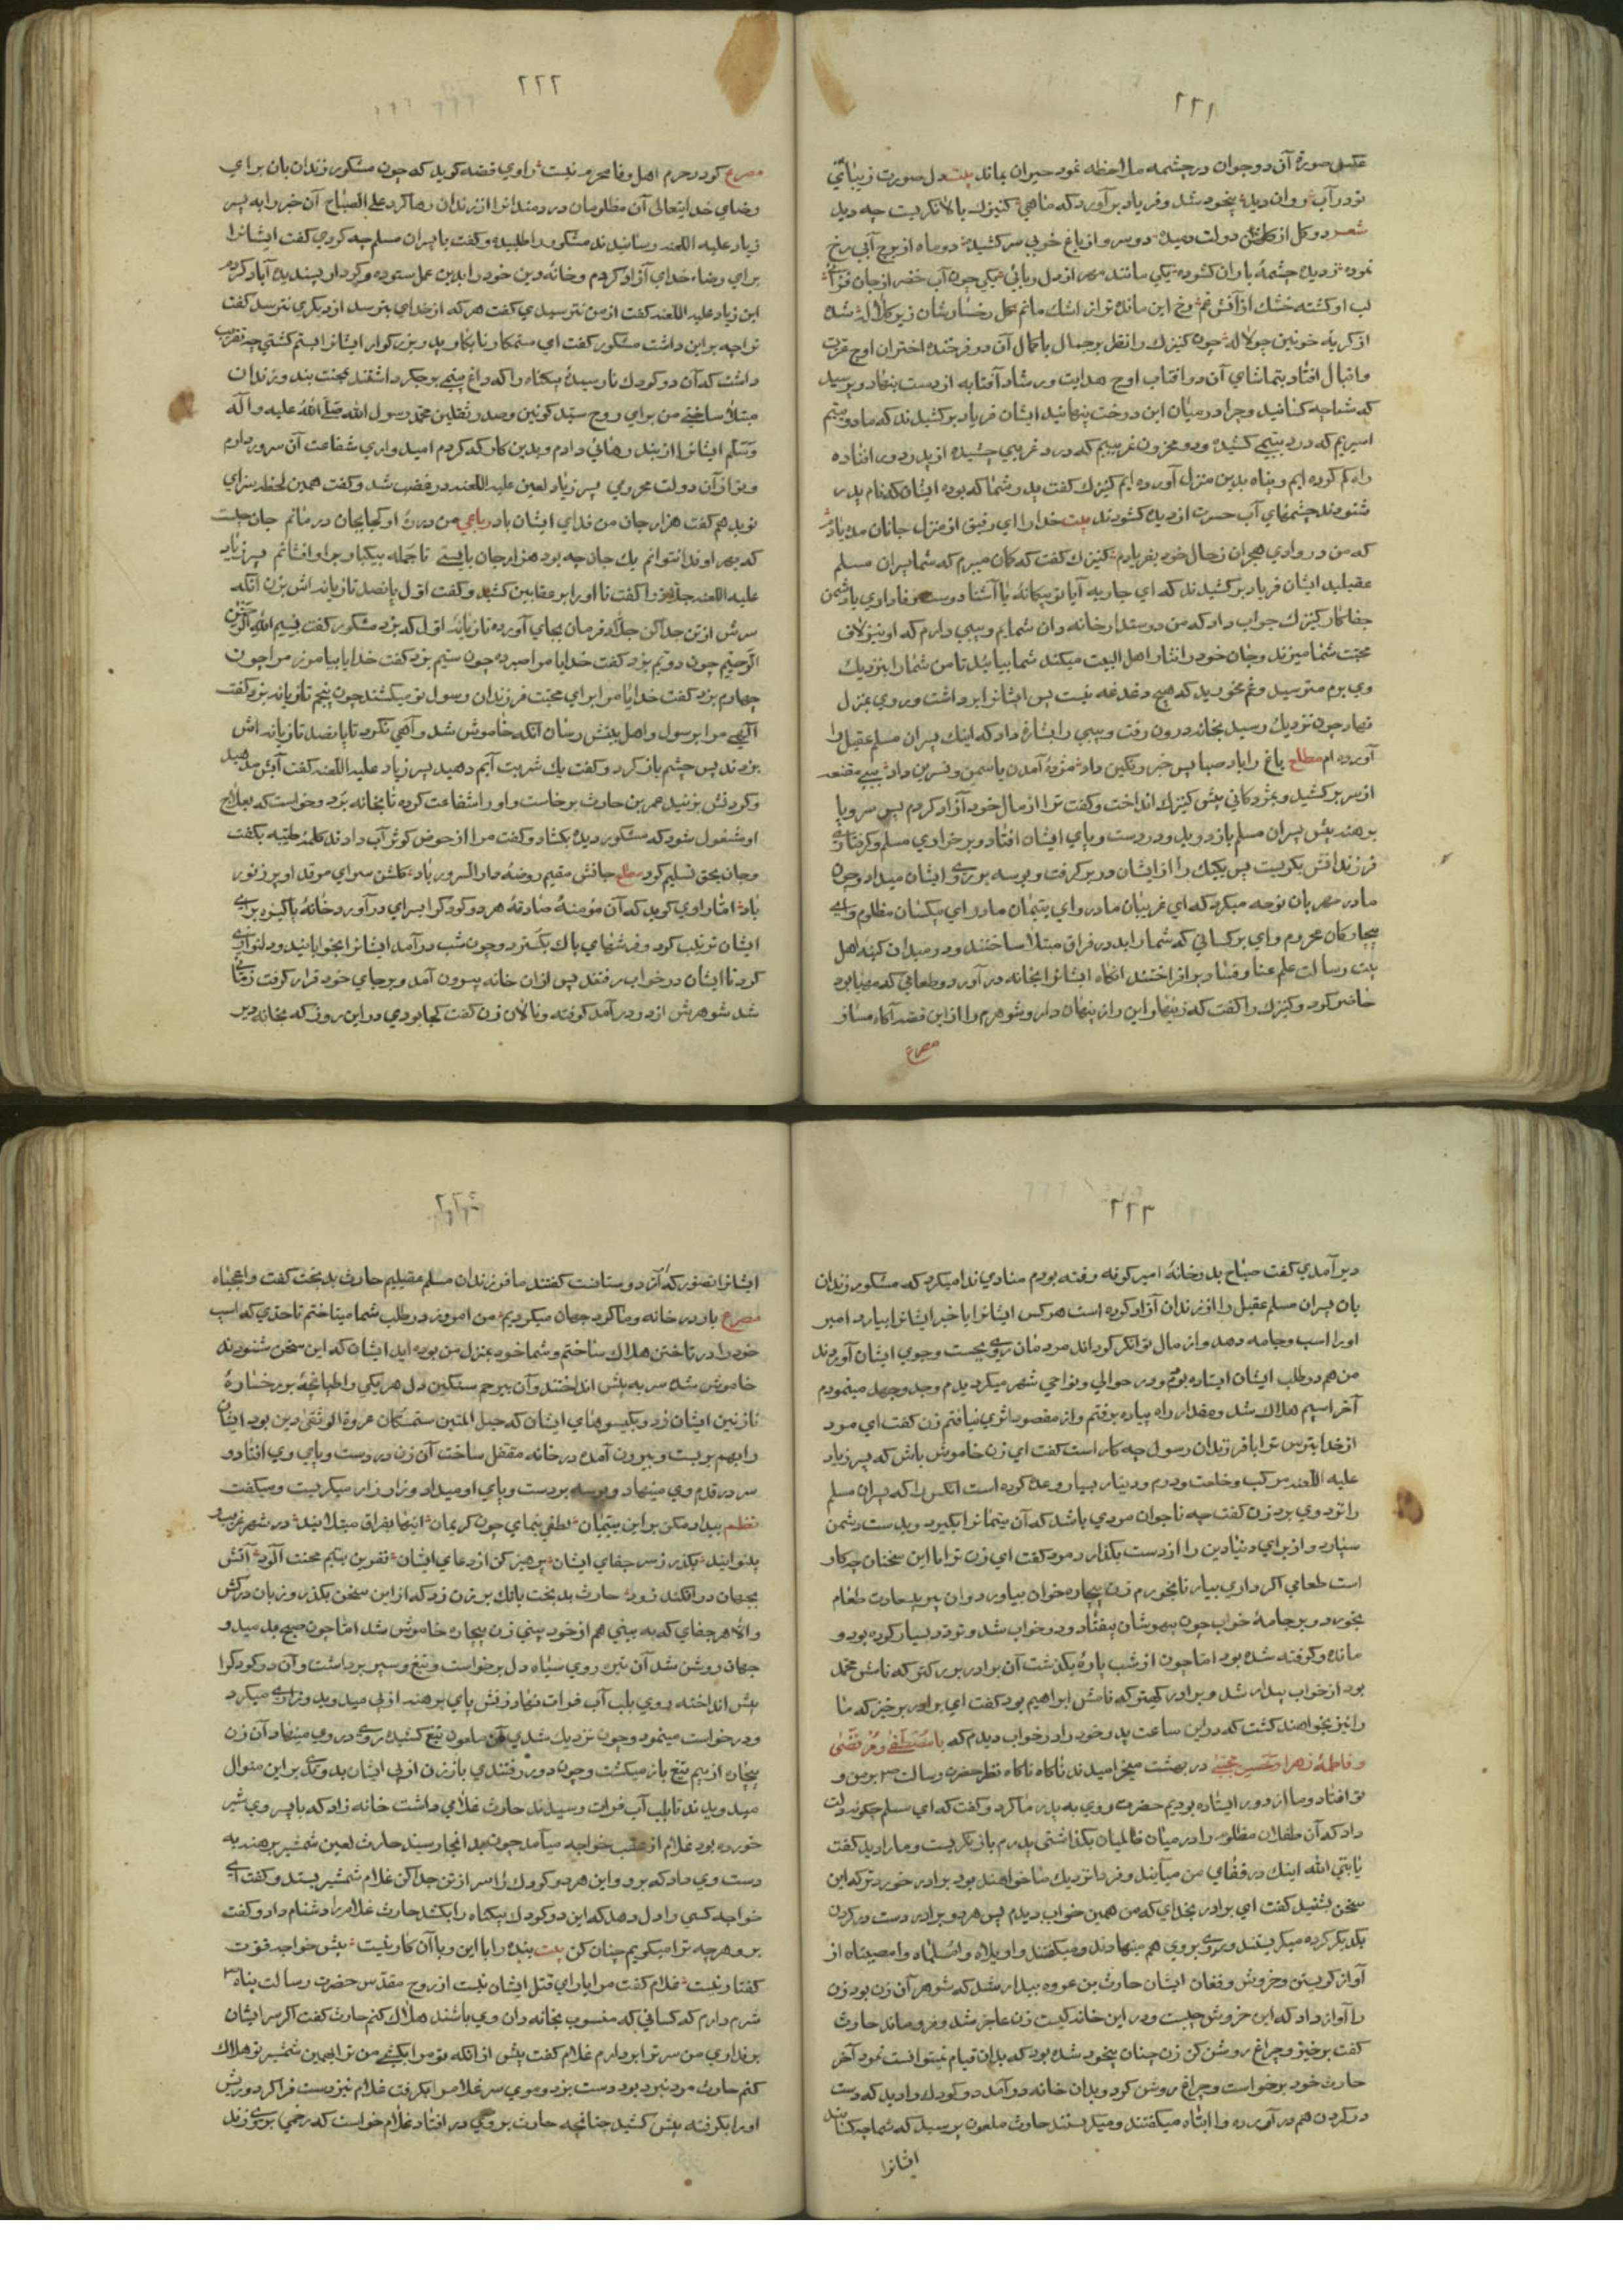 ٢٢١
عکس صورة آن دو جوان در چشمه ملاحظه نمود حیران بماند بیت دل صورت زیبای
تو در آب روان دید بیخود شد و فریاد برآورد که ماهی کنیزك بالا نگریست چه دید
شعر دو کل از کلشن دولت دمیده دو سرو از باغ خوبی سر کشیده دو ماه از برج آبی رخ
نموده ز دیده چشمهٔ باران کشوده یکی مانند مهر از دل ربائی یکی چون آب خضر از جان فزائی
لب او کشته خشك از آتش غم رخ این مانده تر از اشك ماتم کل رخسارشان زیر کلاله شده
از کریه خونین چو لاله چون کنیزك را نظر بر جمال باکمال آن دو فرخنده اختران اوج عزت
و اقبال افتاد بتماشای آن دو افتاب اوج هدایت و رشاد آفتابه از دست بنهاد و پرسید
که شما چه کسانید و چرا در میان این درخت پنهانید ایشان فریاد بر کشیدند که ما دو یتیم
اسیریم که درد یتیمی کشیده و دو محزون غریبیم که درد غریبی چشیده از پدر دور افتاده
راه کم کرده ایم و پناه بدین منزل آورده ایم کنیزك گفت پدر شما که بوده ایشان که نام پدر
شنودند چشمهای آب حسرت از دیده کشودند بیت خدا را ای رفیق از منزل جانان مده یادم
که من در وادی هجران ز حال خود بفریادم کنیزك گفت که کمان میبرم که شما پسران مسلم
عقیلید ایشان فریاد بر کشیدند که ای جاریه آیا تو بیکانهٔ یا آشنا دوست وفاداری یا دشمن
جفاکار کنیزك جواب داد که من دوستدار خاندان شمایم و بیبی دارم که او نیز لاف
محبت شما میزند و جان خود را نثار اهل البیت میکند شما بیائید تا من شما را بنزدیك
وی برم مترسید و غم مخورید که هیچ دغدغه نیست پس ایشانرا برداشت و روی بمنزل
نهاد چون نزدیك رسید بخانه درون رفت و بیبی را بشارة داد که اینك پسران مسلم عقیل را
آورده ام مطلع باغ را باد صبا پس خبر رنکین داد مژدهٔ آمدن یاسمن و نسرین داد بیبی مقنعه
از سر بر کشید و بمژدکانی پیش کنیزك انداخت و گفت ترا از مال خود آزاد کردم پس سر و پا
برهنه پیش پسران مسلم باز دوید و در دست و پای ایشان افتاد و بر خواری مسلم و
فرزندانش بگریست پس یکیك را از ایشان در بر کرفت و بوسه بر روی ایشان میداد و چون
مادر مهربان نوحه میکرد که ای غریبان مادر و ای یتیمان مادر ای بیکسان مظلوم و ای
بیچارکان محروم وای بر کسانی که شما را بدرد فراق مبتلا ساختند و در میدان کینه اهل
بیت رسالت علم عنا و فساد بر افراختند انکاه ایشانرا بخانه در آورد و طعامی که مهیا بود
حاضر کرد و کنیزك را گفت که زینهار این راز پنهان دار و شوهرم را از این قصه آکاه مساز
مصرع
٢٢٢
مصرع کو در حرم اهل وفا محرم نیست راوی قصه کوید که چون مشکور زندان بان برای
رضای خدایتعالی آن مظلومان دردمندانرا از زندان رها کرد علی الصباح آن خبر را به پسر
زیاد علیه اللعنه رسانیدند مشکور را طلبید و گفت با پسران مسلم چه کردی گفت ایشانرا
برای رضاء خدای آزاد کردم و خانهٔ دین خود را بدین عمل ستوده و کردار پسندیده آباد کردم
ابن زیاد علیه اللعنه گفت از من نترسیدی گفت هر که از خدای بترسد از دیکری نترسد گفت
ترا چه بر این داشت مشکور گفت ای ستمکار نابکار پدر بزرکوار ایشانرا بستم کشتی چه تقریب
داشت که آن دو کودك نارسیدهٔ بیکناه را که داغ یتیمی بر جکر داشتند بمحنت بند و زندان
مبتلا ساختی من برای روح سید کونین و صدر ثقلین محمد رسول الله صلی الله علیه و اله
و سلم ایشانرا از بند رهائی دادم و بدین کار که کردم امیدواری شفاعت آن سرور دارم
و تو از آن دولت محرومی پسر زیاد لعین علیه اللعنه در غضب شد و گفت همین لحظه سزای
تو بدهم گفت هزار جان من فدای ایشان باد رباعی من در ره او کجا بجان در مانم جان چیست
که بهر او فدا نتوانم یك جان چه بود هزار جان بایستی تا جمله بیکبار بر او افشانم پسر زیاد
علیه اللعنه جلاد را گفت تا او را بر عقابین کشید و گفت اول پانصد تازیانه اش بزن انکه
سرش از تن جدا کن جلاد فرمان بجای آورده تازیانهٔ اول که بزد مشکور گفت بسم الله الرحمن
الرحیم چون دویم بزد گفت خدایا مرا صبر ده چون سیم بزد گفت خدایا بیامرز مرا چون
چهارم بزد گفت خدایا مرا برای محبت فرزندان رسول تو میکشند چون پنجم تازیانه بزد گفت
الهی مرا بر رسول و اهل بیتش رسان انکه خاموش شد و آهی نکرد تا پانصد تازیانه اش
بزدند پس چشم باز کرد و گفت یك شربت آبم دهید پسر زیاد علیه اللعنه گفت آبش مدهید
و کردنش بزنید عمر بن حارث برخاست و او را شفاعت کرده تا بخانه برد و خواست که بعلاج
او مشغول شود که مشکور دیده بکشاد و گفت مرا از حوض کوثر آب دادند کلمهٔ طیبه بگفت
و جان بحق تسلیم کرد مطلع جانش مقیم روضهٔ دار السرور باد کلشن سرای مرقد او پر ز نور
باد اما راوی کوید که آن مؤمنهٔ صادقهٔ هر دو کودکرا بسرای در آورد و خانهٔ پاکیزه برای
ایشان ترتیب کرد و فرشهای پاك بکسترد و چون شب در آمد ایشانرا بخوابانید و دلنوازی
کرد تا ایشان در خواب رفتند پس از ان خانه بیرون آمد و بر جای خود قرار کرفت زمانی
شد شوهرش از در در آمد کوفته و نالان زن گفت کجا بودی در این روز که بخانه دیر
٢٢٣
دیر آمدی گفت صباح بدر خانهٔ امیر کوفه رفته بودم منادی ندا میکرد که مشکور زندان
بان پسران مسلم عقیل را از زندان آزاد کرده است هر کس ایشانرا یا خبر ایشانرا بیارد امیر
او را اسب و جامه دهد و از مال توانکر کرداند مردمان روی بجست و جوی ایشان آوردند
من هم در طلب ایشان ایستاده بودم و در حوالی و نواحی شهر میکردیدم و جد و جهد مینمودم
آخر اسبم هلاك شد و مقدار راه پیاده برفتم و از مقصود اثری نیافتم زن گفت ای مرد
از خدا بترس ترا با فرزندان رسول چه کار است گفت ای زن خاموش باش که پسر زیاد
علیه اللعنه مرکب و خلعت و درم و دینار بسیار وعده کرده است انکس را که پسران مسلم
را نزد وی برد زن گفت چه ناجوان مردی باشد که آن یتیمانرا بکیرد و بدست دشمن
سپارد و از برای دنیا دین را از دست بکذارد مرد گفت ای زن ترا با این سخنان چه کار
است طعامی اکر داری بیار تا بخورم زن بیچاره خوان بیاورد و ان پیر پلید حارث طعام
بخورد و بر جامهٔ خواب چون بیهوشان بیفتاد و در خواب شد و تردد بسیار کرده بود و
مانده و کوفته شده بود اما چون از شب پارهٔ بکذشت آن برادر بزرکتر که نامش محمد
بود از خواب بیدار شد و برادر کهتر که نامش ابراهیم بود گفت ای برادر برخیز که ما
را نیز بخواهند کشت که در این ساعت پدر خود را در خواب دیدم که با مصطفی و مرتضی
و فاطمهٔ زهرا و حسن مجتبی در بهشت میخرامیدند ناکاه ناکاه نظر حضرت رسالت بر من و
تو افتاد و ما از دور ایستاده بودیم حضرت روی به پدر ما کرد و گفت که ای مسلم چکونه دلت
داد که آن طفلان مظلوم را در میان ظالمیان بکذاشتی پدرم باز نکریست و ما را دید گفت
یا نبی الله اینك در قفای من میآیند و فردا نزدیك ما خواهند بود برادر خوردتر که این
سخن بشنید گفت ای برادر بخدای که من همین خواب دیدم پس هر دو برادر دست در کردن
یکدیکر کرده میکریستند و روی بروی هم مینهادند و میکفتند وا ویلاه وا مسلماه وا مصیبتاه از
آواز کریستن و خروش و فغان ایشان حارث بن عروه بیدار شد که شوهر آن زن بود زن
را آواز داد که این خروش چیست و در این خانه کیست زن عاجز شد و فرو ماند حارث
گفت برخیز و چراغ روشن کن زن چنان بیخود شده بود که بدان قیام نمیتوانست نمود آخر
حارث خود برخواست و چراغ روشن کرد و بدان خانه در آمد دو کودك را دید که دست
در کردن هم در آورده وا ابتاه میکفتند و میکریستند حارث ملعون پرسید که شما چه کسانید
ایشانرا
ایشانرا تصور که از دوستانست گفتند ما فرزندان مسلم عقیلیم حارث بدبخت گفت وا عجباه
مصرع یار در خانه و ما کرد جهان میکردیم من امروز در طلب شما میتاختم تا حدی که اسب
خود را در تاختن هلاك ساختم و شما خود بمنزل من بوده اید ایشان که این سخن شنودند
خاموش شده سر به پیش انداختند و آن بیرحم سنکین دل هر یکی را طپانچهٔ بر رخسارهٔ
نازنین ایشان زد و بکیسوهای ایشان که حبل المتین متمسکان عروة الوثقی دین بود ایشان
را بهم بر بست و بیرون آمده در خانه مقفل ساخت آن زن در دست و پای وی افتاد و
سر در قدم وی مینهاد و بوسه بر دست و پای او میداد و زار زار میکریست و میکفت
نظم بیداد مکن بر این یتیمان لطفی بنمای چون کریمان اینها بفراق مبتلا اند در شهر غریب و
بینوا اند بکذر ز سر جفای ایشان پرهیز کن از دعای ایشان نفرین یتیم محنت آلود آتش
بجهان در افکند زود حارث بدبخت بانك بر زن زد که از این سخن بکذر و زبان درکش
و الا هر جفای که به بینی هم از خود بینی زن بیچاره خاموش شد اما چون صبح بدمید و
جهان روشن شد آن تیره روی سیاه دل برخواست و تیغ و سپر برداشت و آن دو کودکرا
پیش انداخته روی بلب آب فرات نهاد زنش پای برهنه از پی میدوید و زاری میکرد
و درخواست مینمود و چون نزدیك شدی آن ملعون تیغ کشیده روی در وی مینهاد آن زن
بیچاره از بیم تیغ باز میکشت و چون دور رفتندی باز زن از پی ایشان بدویدی بر این منوال
میدویدند تا بلب آب فرات رسیدند حارث غلامی داشت خانه زاد که با پسر وی شیر
خورده بود غلام از عقب خواجه میآمد چون بدانجا رسید حارث لعین شمشیر برهنه به
دست وی داد که برو و این هر دو کودك را سر از تن جدا کن غلام شمشیر بستد و گفت ای
خواجه کسی را دل دهد که این دو کودك بیکناه را بکشد حارث غلام را دشنام داد و گفت
برو هر چه ترا میکویم چنان کن بیت بنده را با این و با آن کار نیست پیش خواجه قوت
کفتار نیست غلام گفت مرا یارای قتل ایشان نیست از روح مقدس حضرت رسالت پناه
شرم دارم که کسانی که منسوب بخاندان وی باشند هلاك کنم حارث گفت اکر سر ایشان
برنداری من سر ترا بردارم غلام گفت پیش از انکه تو مرا بکشی من ترا بهمین شمشیر تو هلاك
کنم حارث مرد نبرد بود دست بزد و موی سر غلام را بکرفت غلام نیز دست فرا کرد و ریش
او را بکرفته پیش کشید چنانچه حارث بر وی در افتاد غلام خواست که زخمی بر وی زند